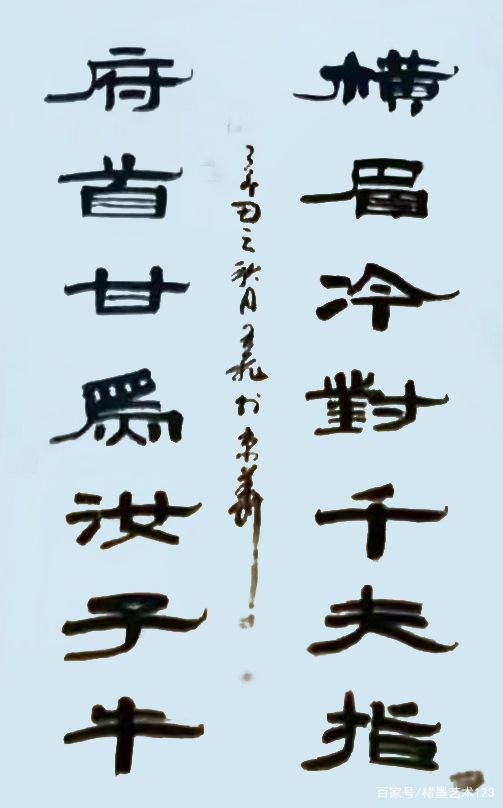 横眉冷對千夫指
之秋月於京華
府首甘爲汝子牛
百家号/楮墨艺术123